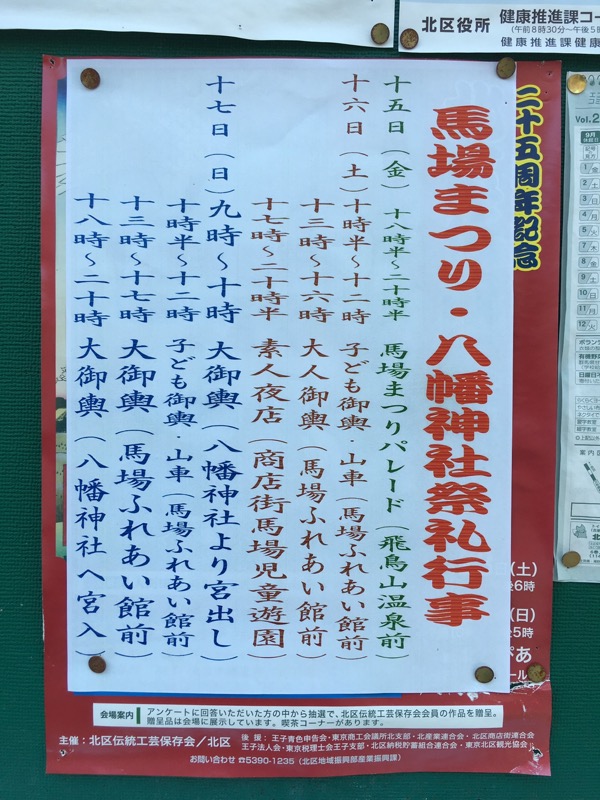 北区役所
健康推進課コー
（午前8時30分〜午後5時
健康推進課健康
二十五周年記念
馬場まつり・八幡神社祭礼行事
十五日（金） 十八時半〜二十時半 馬場まつりパレード（飛鳥山温泉前）
十六日（土） 十時半〜十二時 子ども御輿・山車（馬場ふれあい館前）
十三時〜十六時 大人御輿（馬場ふれあい館前）
十七時〜二十時半 素人夜店（商店街馬場児童遊園）
十七日（日） 九時〜十時 大御輿（八幡神社より宮出し）
十時半〜十二時 子ども御輿・山車（馬場ふれあい館前）
十三時〜十七時 大御輿（馬場ふれあい館前）
十八時〜二十時 大御輿（八幡神社へ宮入）
（土）
6時
（日）
5時
ぴあ
ール
会場案内
アンケートに回答いただいた方の中から抽選で、北区伝統工芸保存会会員の作品を贈呈。
贈呈品は会場に展示しています。喫茶コーナーがあります。
主催：北区伝統工芸保存会／北区
後援：王子青色申告会・東京商工会議所北支部・北産業連合会・北区商店街連合会
王子法人会・東京税理士会王子支部・北区納税貯蓄組合連合会・東京北区観光協会
お問い合わせ ☎5390-1235（北区地域振興部産業振興課）
Vol.2
9月
1（金）
2（土）
3（日）
4（月）
5（火）
7（木）
8（金）
9（土）
10（日）
11（月）
12（火）
案内